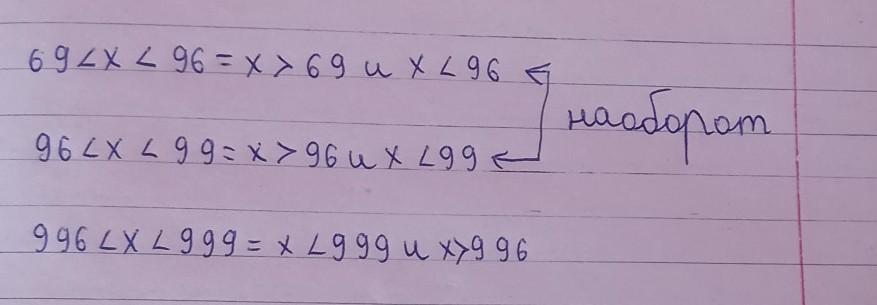 69<x<96=x>69 и x<96
наоборот
96<x<99=x>96 и x<99
996<x<999=x<999 и x>996